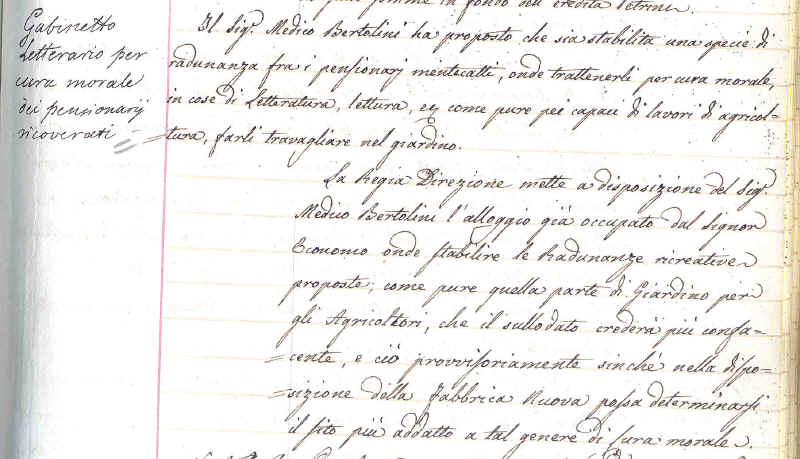 Gabinetto
Letterario per
cura morale
dei pensionarij
ricoverati
in fondo dell'eredità
Il Sigr. Medico Bertolini ha proposto che sia stabilita una specie di
radunanza fra i pensionarj mentecatti, onde trattenerli per cura morale,
in cose di Letteratura, lettura, come pure pei capaci di lavori di agricol=
=tura, farli travagliare nel giardino.
La Regia Direzione mette a disposizione del Sigr.
Medico Bertolini l'alloggio già occupato dal Signor
Economo onde stabilire le Radunanze ricreative
proposte; come pure quella parte di Giardino per
gli Agricoltori, che il sullodato crederà più confa=
=cente, e ciò provvisoriamente sinchè nella dispo=
=sizione della Fabbrica Nuova possa determinarsi
il sito più addatto a tal genere di Cura morale.